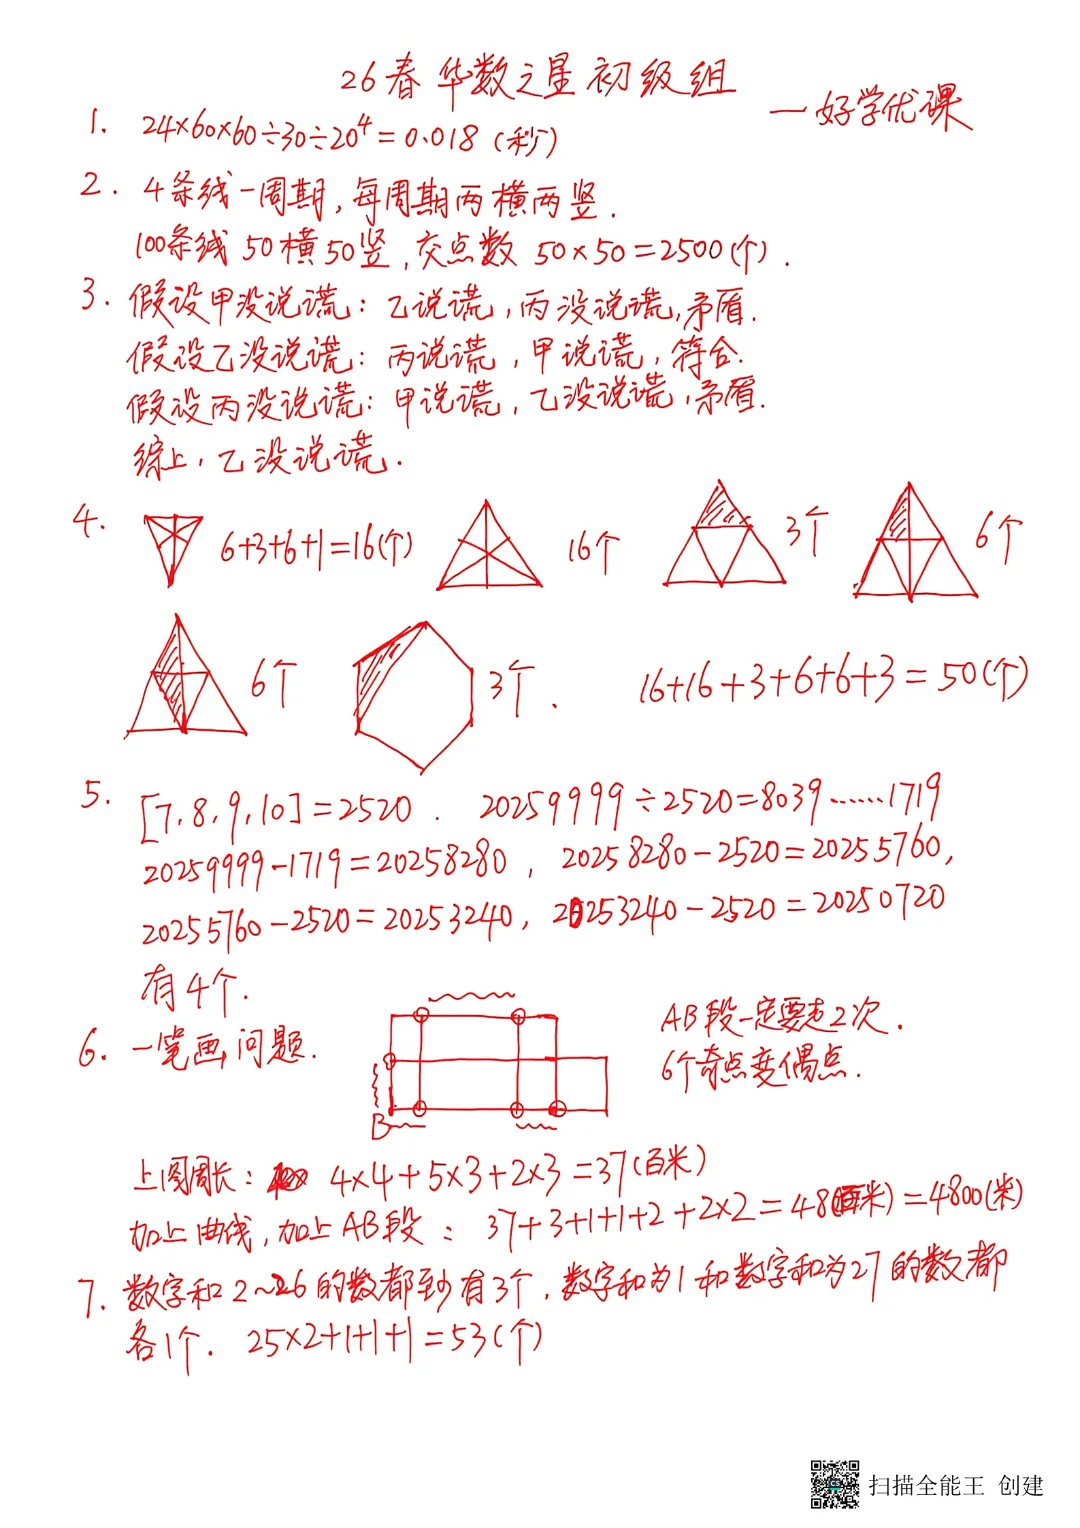 26春华数之星初级组
—好学优课
1. 24×60×60÷30÷20⁴=0.018(秒)
2. 4条线一周期,每周期两横两竖.
100条线50横50竖,交点数 50×50=2500(个).
3. 假设甲没说谎:乙说谎,丙没说谎,矛盾.
假设乙没说谎:丙说谎,甲说谎,符合.
假设丙没说谎:甲说谎,乙没说谎,矛盾.
综上,乙没说谎.
4. 6+3+6+1=16(个) 16个 3个 6个
6个 3个. 16+16+3+6+6+3=50(个)
5. [7,8,9,10]=2520. 20259999÷2520=8039……1719
20259999-1719=20258280, 20258280-2520=20255760,
20255760-2520=20253240, 20253240-2520=20250720
有4个.
6. 一笔画问题. AB段一定要走2次.
6个奇点变偶点.
B
上图周长: 4×4+5×3+2×3=37(百米)
加上曲线,加上AB段: 37+3+1+1+2+2×2=48(百米)=4800(米)
7. 数字和2~26的数都至少有3个,数字和为1和数字和为27的数都
各1个. 25×2+1+1+1=53(个)
扫描全能王 创建